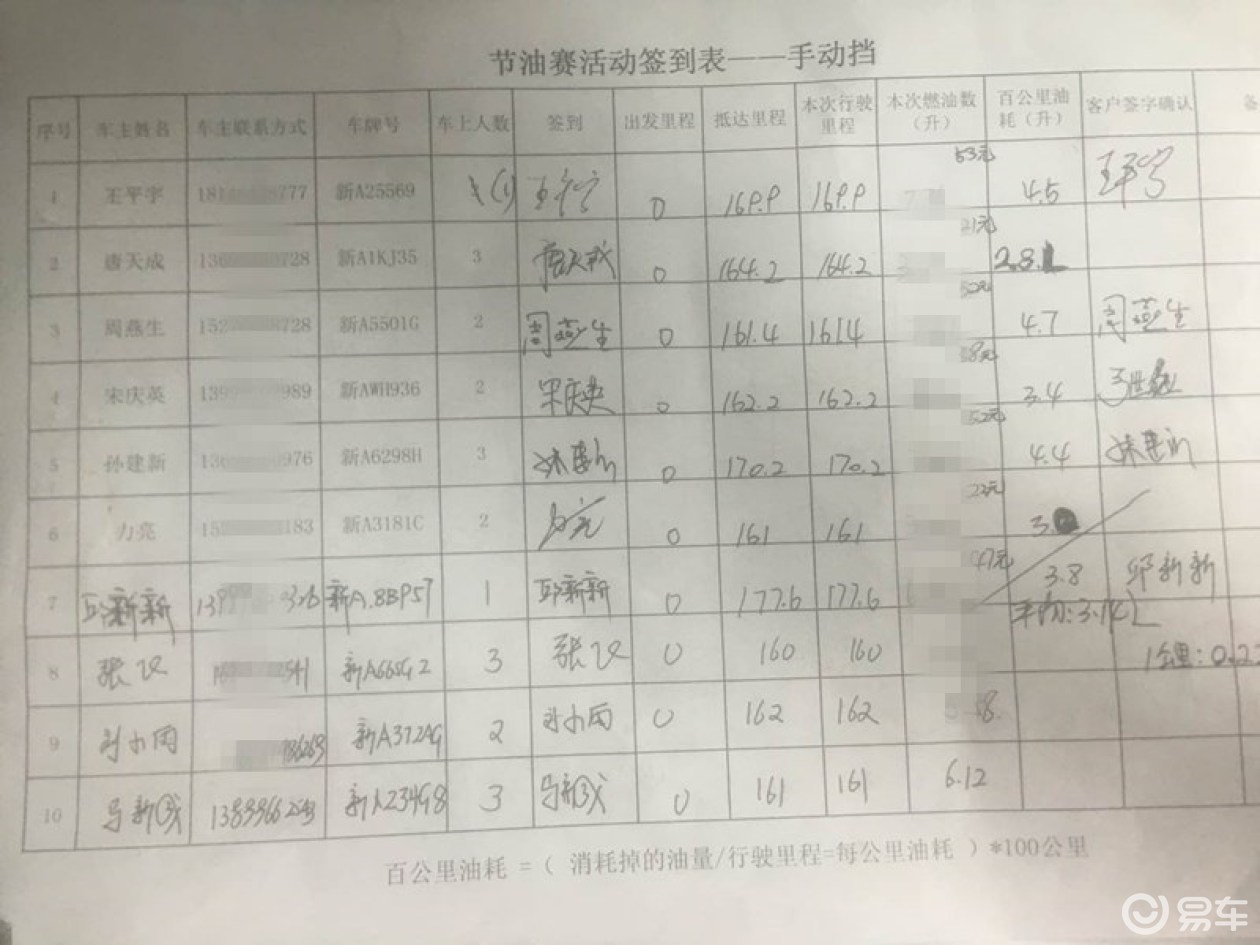 节油赛活动签到表——手动挡
序号 车主姓名 车主联系方式 车牌号 车上人数 签到 出发里程 抵达里程 本次行驶里程 本次燃油数（升） 百公里油耗（升） 客户签字确认 备
1 王平宇 18 777 新A25569 (1) 王平宇 0 169.9 169.9 53元 4.5 王平宇
2 唐天成 136 728 新A1KJ35 3 唐天成 0 164.2 164.2 21元 2.8
3 周燕生 152 728 新A5501G 2 周燕生 0 161.4 161.4 50元 4.7 周燕生
4 宋庆英 139 989 新AWH936 2 宋庆英 0 162.2 162.2 8元 3.4
5 孙建新 136 976 新A6298H 3 孙建新 0 170.2 170.2 52元 4.4 孙建新
6 力亮 15 183 新A3181C 2 力亮 0 161 161 22元 3.
7 邱新新 139 326 新A.8BP57 1 邱新新 0 177.6 177.6 47元 3.8 邱新新
平均:3.14L
8 张 541 新A66SG2 3 张 0 160 160 1公里:0.22
9 136263 新A372AG 2 0 162 162 8
10 3 0 161 161 6.12
百公里油耗 =（ 消耗掉的油量/行驶里程=每公里油耗 ）*100公里
易车